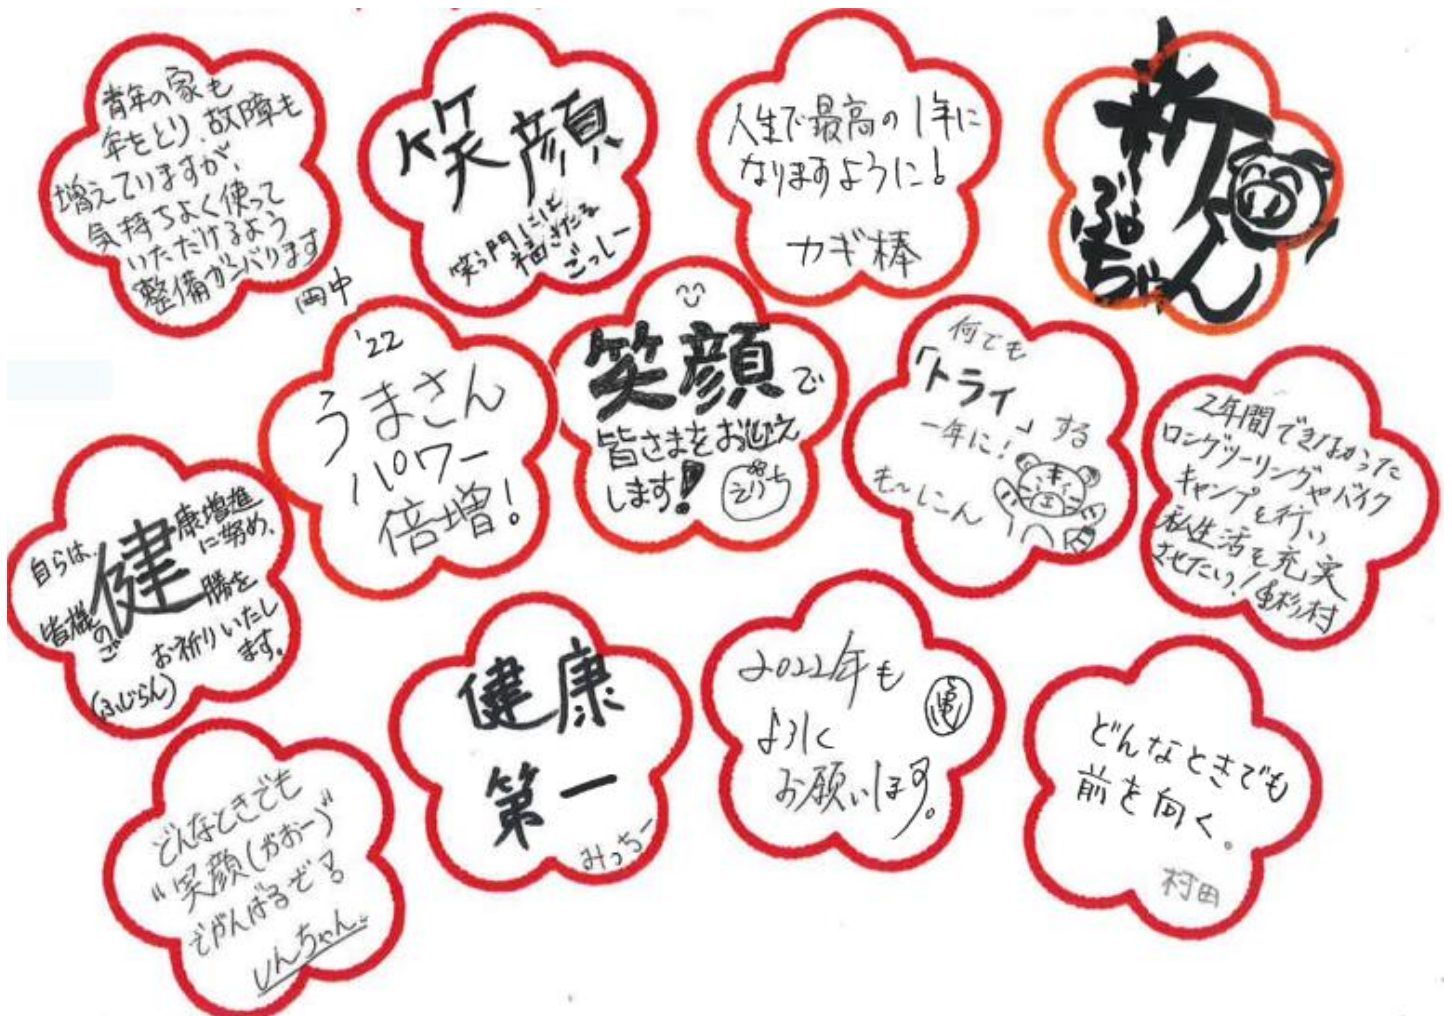 青年の家も
年をとり、故障も
増えていますが、
気持ちよく使って
いただけるよう
整備ガンバります
岡中
笑顔
笑う門には
福きたる
ごっしー
人生で最高の1年に
なりますように！
カギ棒
新
ぶーちゃん
'22
うまさん
パワー
倍増！
笑顔で
皆さまをお迎え
します！
えりち
何でも
「トライ」する
一年に！
も～しこん
2年間できなかった
ロングツーリングやバイク
キャンプを行い
私生活を充実
させたい！杉村
自らは、健康増進
に努め、
皆様のご健勝を
お祈りいたし
ます。
（ふじらん）
健康
第一
みっちー
2022年も
よろしく
お願いします。
どんなときでも
前を向く。
村田
どんなときでも
"笑顔（がおー）"
でがんばるぞ！
しんちゃん